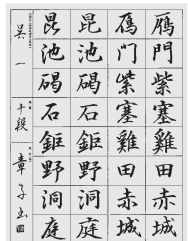 雁門紫塞雞田赤城
雁門紫塞雞田赤城
昆池碣石鉅野洞庭
昆池碣石鉅野洞庭
吴一
十段
章子